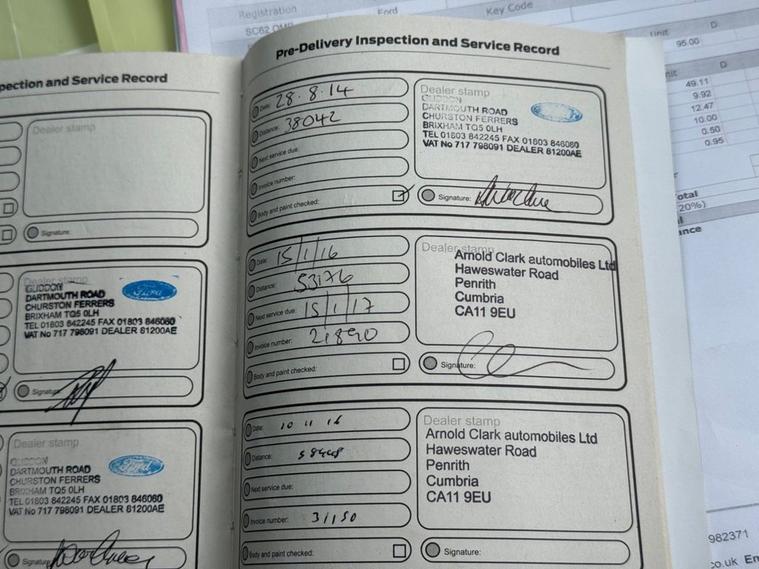 Registration
Ford
Key Code
SC62
Unit
D
95.00
Unit
D
49.11
9.92
12.47
10.00
0.50
0.95
otal
20%)
ance
982371
co.uk
pection and Service Record
Dealer stamp
Signature:
Dealer stamp
GLIDDON
DARTMOUTH ROAD
CHURSTON FERRERS
BRIXHAM TQ5 0LH
TEL 01803 842245 FAX 01803 846060
VAT No 717 798091 DEALER 81200AE
Ford
Signature:
Dealer stamp
GLIDDON
DARTMOUTH ROAD
CHURSTON FERRERS
BRIXHAM TQ5 0LH
TEL 01803 842245 FAX 01803 846060
VAT No 717 798091 DEALER 81200AE
Ford
Signature:
Pre-Delivery Inspection and Service Record
Date: 28.8.14
Distance: 38042
Next service due:
Invoice number:
Body and paint checked:
Dealer stamp
GLIDDON
DARTMOUTH ROAD
CHURSTON FERRERS
BRIXHAM TQ5 0LH
TEL 01803 842245 FAX 01803 846060
VAT No 717 798091 DEALER 81200AE
Signature:
Date: 15/1/16
Distance: 53176
Next service due: 15/1/17
Invoice number: 21890
Body and paint checked:
Dealer stamp
Arnold Clark automobiles Ltd
Haweswater Road
Penrith
Cumbria
CA11 9EU
Signature:
Date: 10 11 16
Distance:
Next service due:
Invoice number: 31150
Body and paint checked:
Dealer stamp
Arnold Clark automobiles Ltd
Haweswater Road
Penrith
Cumbria
CA11 9EU
Signature: